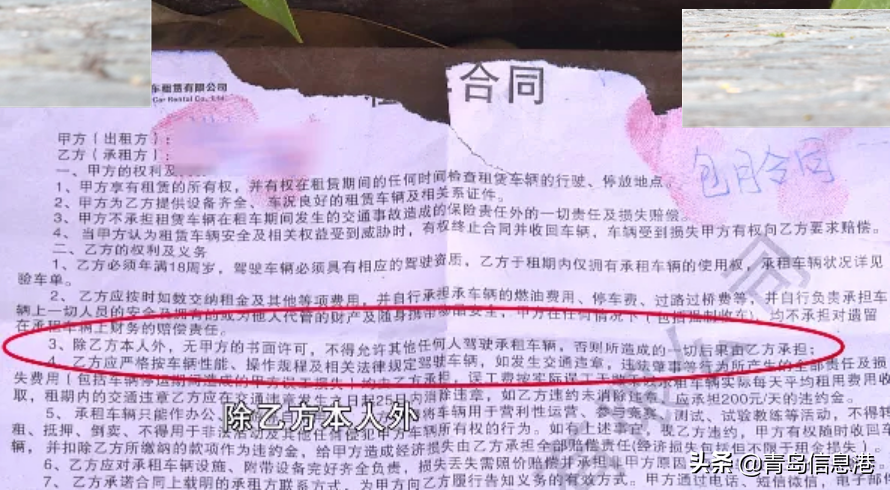 车租赁有限公司
Car Rental Co., Ltd
合同
包月合同
甲方（出租方）：
乙方（承租方）：
一、甲方的权利及
1、甲方享有租赁的所有权，并有权在租赁期间的任何时间检查租赁车辆的行驶、停放地点。
2、甲方为乙方提供设备齐全、车况良好的租赁车辆及相关系证件。
3、甲方不承担租赁车辆在租车期间发生的交通事故造成的保险责任外的一切责任及损失赔偿。
4、当甲方认为租赁车辆安全及相关权益受到威胁时，有权终止合同并收回车辆，车辆受到损失甲方有权向乙方要求赔偿。
二、乙方的权利及义务
1、乙方必须年满18周岁，驾驶车辆必须具有相应的驾驶资质，乙方于租期内仅拥有承租车辆的使用权，承租车辆状况详见
验车单。
2、乙方应按时如数交纳租金及其他等项费用，并自行承担承车辆的燃油费用、停车费、过路过桥费等，并自行负责承担车
辆上一切人员的安全及拥有的或为他人代管的财产及随身携带物品安全，甲方在任何情况下（包括强制收车），均不承担对遗留
在承租车辆上财务的赔偿责任。
3、除乙方本人外，无甲方的书面许可，不得允许其他任何人驾驶承租车辆，否则所造成的一切后果由乙方承担；
4、乙方应严格按车辆性能、操作规程及相关法律规定驾驶车辆，如发生交通违章、违法肇事等行为所产生的全部责任及损
失费用（包括车辆停运期间造成的甲方误工损失）均由乙方承担，误工费按实际误工
承租车辆实际每天平均租用费用收
取，租期内的交通违章乙方应在交通违章发生之日起25日内消除违章，如乙方违约未消除违章，应承担200元/天的违约金。
5、承租车辆只能作办公、
将车辆用于营利性运营、参与竞赛、测试、试验教练等活动，不得转
租、抵押、倒卖、不得用于非法活动及其他任何侵犯甲方车辆所有权的行为。如有上述事宜，视乙方违约，甲方有权随时收回车
辆，并扣除乙方所缴纳的款项作为违约金，给甲方造成经济损失由乙方承担全部赔偿责任（经济损失包括但不限于租金损失）
6、乙方应对承租车辆设施、附带设备完好齐全负责，损失丢失需照价赔偿并承担非甲方原因
7、乙方承诺合同上载明的承租方联系方式，为甲方向乙方履行告知义务的有效方式。甲方通过电话、短信微信，电子邮件
除乙方本人外
头条 @青岛信息港